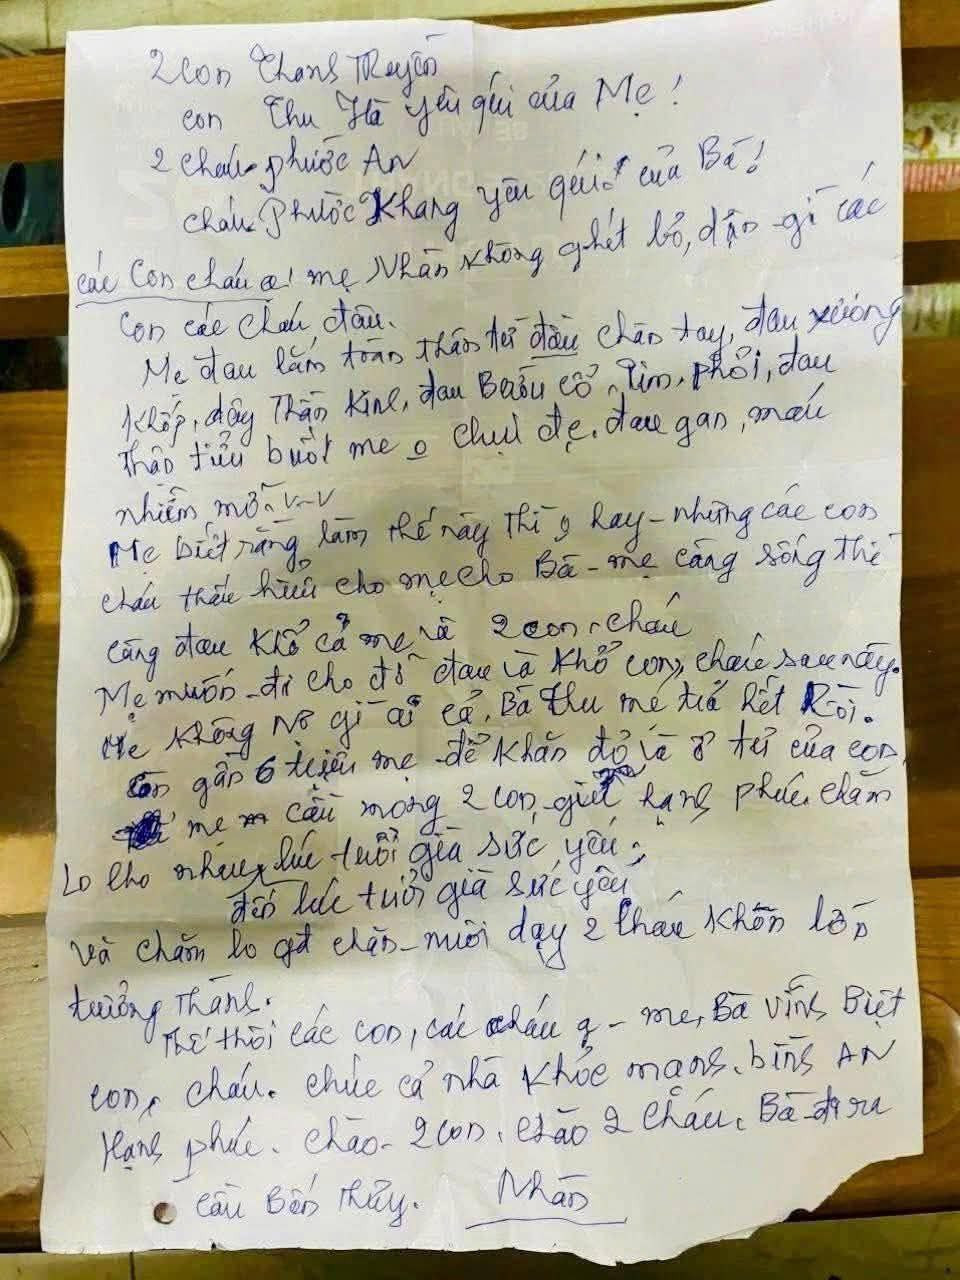 2 con Thanh Truyền
con Thu Hà yêu quí của Mẹ!
2 cháu Phước An
cháu Phước Khang yêu quí! của Bà!
các con cháu ạ! mẹ Nhàn không ghét bỏ, dận gì các
con các cháu đâu.
Mẹ đau lắm toàn thân từ đầu chân tay, đau xương
khớp, dây thần kinh, đau Bướu cổ, Tim, phổi, đau
thận tiểu buốt mẹ o chịu đc, đau gan, máu
nhiễm mỡ v-v
Mẹ biết rằng làm thế này thì o hay - nhưng các con
cháu thấu hiểu cho mẹ cho Bà - mẹ càng sống thì
càng đau khổ cả mẹ và 2 con, cháu
Mẹ muốn đi cho đỡ đau và khổ con, cháu sau này.
Mẹ không nợ gì ai cả, Bà thu mẹ trả hết Rồi.
còn gần 6 triệu mẹ để khăn đỏ và ở tủ của con
mẹ cầu mong 2 con giữ hạnh phúc chăm
lo cho nhau lúc tuổi già sức yếu,
đến lúc tuổi già sức yếu
và chăm lo gđ chăn nuôi dạy 2 cháu khôn lớn
trưởng thành.
Thế thôi các con, các cháu ạ - mẹ, Bà vĩnh Biệt
con, cháu. chúc cả nhà khỏe mạnh, bình AN
Hạnh phúc. chào 2 con, chào 2 cháu. Bà đi ra
cầu Bến Thủy. Nhàn